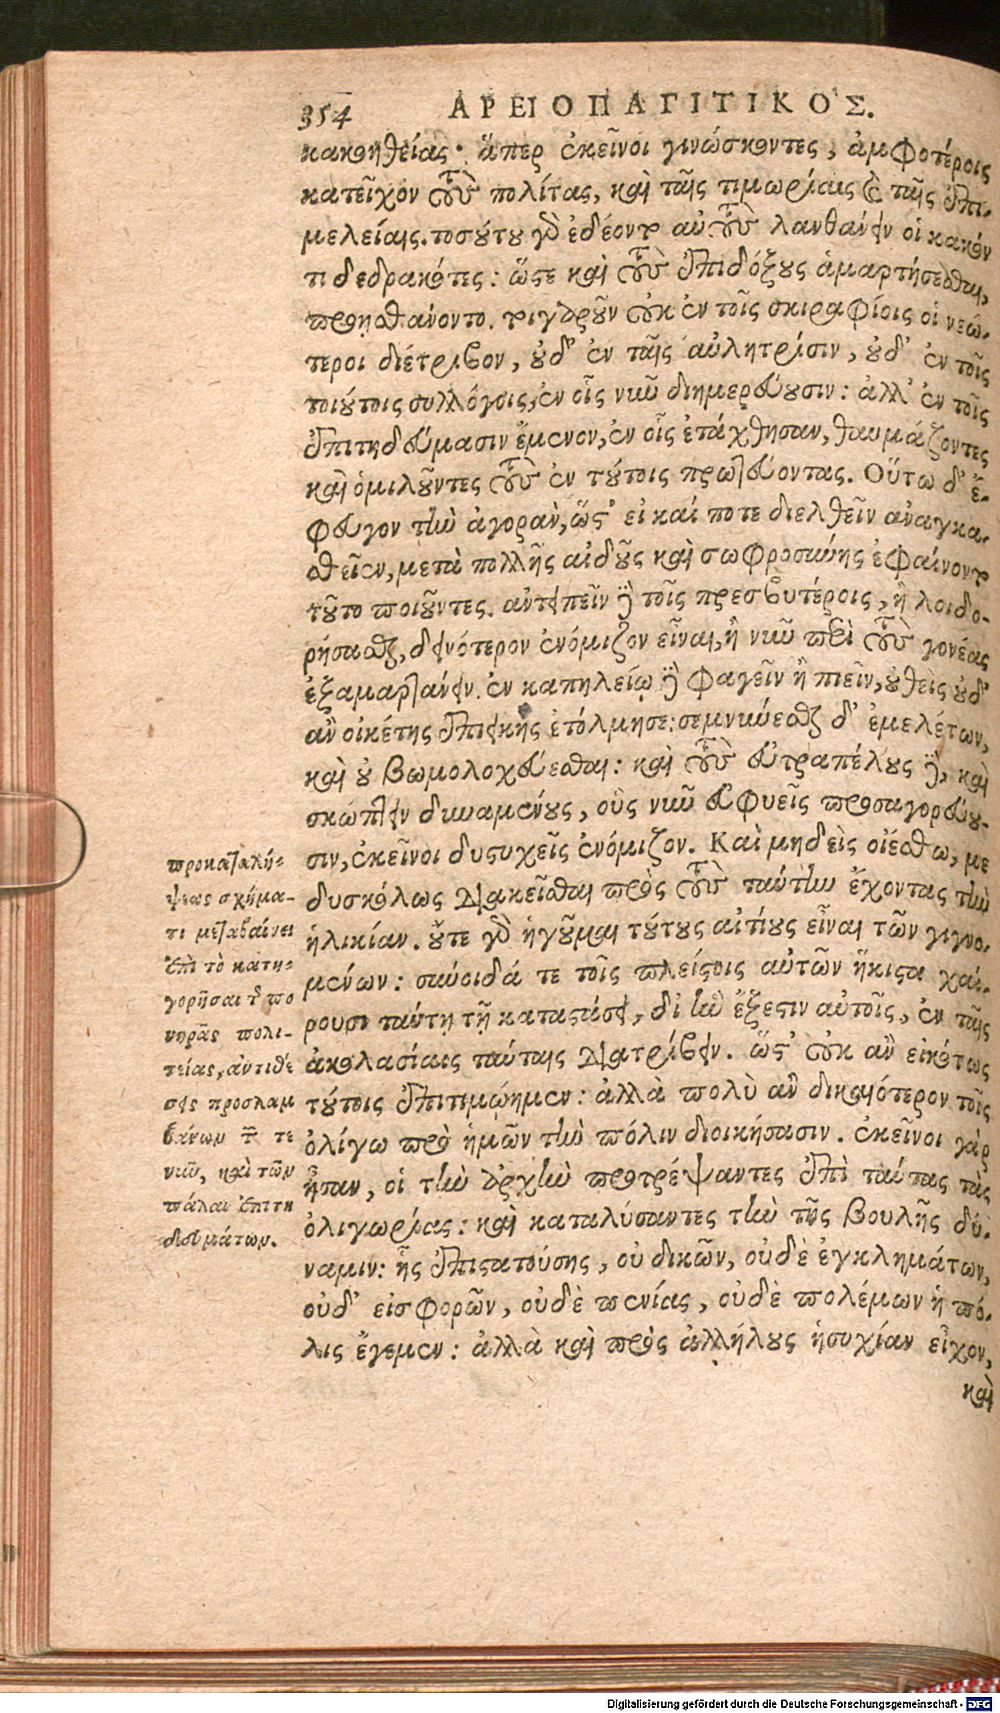 354 ΑΡΕΙΟΠΑΓΙΤΙΚΟΣ.
κακοηθείας· ἅπερ ἐκεῖνοι γινώσκοντες, ἀμφοτέροις
κατεῖχον τοὺς πολίτας, καὶ ταῖς τιμωρίαις καὶ ταῖς ἐπι-
μελείαις. τοσούτου γὸ ἐδέοντο αὐτοὺς λανθάνειν οἱ κακόν
τι δεδρακότες: ὥστε καὶ τοὺς ἐπιδόξους ἁμαρτήσεσθαι,
προῃσθάνοντο. τοιγαροῦν οὐκ ἐν τοῖς σκιραφίοις οἱ νεώ-
τεροι διέτριβον, οὐδ' ἐν ταῖς αὐλητρίσιν, οὐδ' ἐν τοῖς
τοιούτοις συλλόγοις, ἐν οἷς νιῦ διημερεύουσιν: ἀλλ' ἐν τοῖς
ἐπιτηδεύμασιν ἔμενον, ἐν οἷς ἐτάχθησαν, θαυμάζοντες
καὶ ὁμιλοῦντες τοὺς ἐν τούτοις πρωτεύοντας. Οὕτω δ' ἔ-
φευγον τὴν ἀγορὰν, ὥστ' εἰ καί ποτε διελθεῖν ἀναγκα-
σθεῖεν, μετὰ πολλῆς αἰδοῦς καὶ σωφροσύνης ἐφαίνοντο
τοῦτο ποιοῦντες. ἀντειπεῖν δὲ τοῖς πρεσβυτέροις, ἢ λοιδο-
ρήσασθαι, δεινότερον ἐνόμιζον εἶναι, ἢ νῦν περὶ τοὺς γονέας
ἐξαμαρτάνειν. ἐν καπηλείῳ δὲ φαγεῖν ἢ πιεῖν, οὐθεὶς οὐδ'
ἂν οἰκέτης ἐπιεικὴς ἐτόλμησε: σεμνύνεσθαι δ' ἐμελέτων,
καὶ οὐ βωμολοχεύεσθαι: καὶ τοὺς εὐτραπέλους δὲ, καὶ
σκώπτειν δυναμένους, οὓς νῦν εὐφυεῖς προσαγορεύου-
σιν, ἐκεῖνοι δυστυχεῖς ἐνόμιζον. Καὶ μηδεὶς οἰέσθω, με
δυσκόλως διακεῖσθαι πρὸς τοὺς ταύτην ἔχοντας τὴν
ἡλικίαν. οὔτε γὸ ἡγοῦμαι τούτους αἰτίους εἶναι τῶν γιγνο-
μένων: σύνοιδά τε τοῖς πλείστοις αὐτῶν ἥκιστα χαί-
ρουσι ταύτῃ τῇ καταστάσει, δι' ἣν ἔξεστιν αὐτοῖς, ἐν ταῖς
ἀκολασίαις ταύταις διατρίβειν. ὥστ' οὐκ ἂν εἰκότως
τούτοις ἐπιτιμῴημεν: ἀλλὰ πολὺ ἂν δικαιότερον τοῖς
ὀλίγῳ πρὸ ἡμῶν τὴν πόλιν διοικήσασιν. ἐκεῖνοι γὰρ
ἦσαν, οἱ τὴν ἀρχὴν προτρέψαντες ἐπὶ ταύτας τὰς
ὀλιγωρίας: καὶ καταλύσαντες τὴν τῆς Βουλῆς δύ-
ναμιν: ἧς ἐπιστατούσης, οὐ δικῶν, οὐδὲ ἐγκλημάτων,
οὐδ' εἰσφορῶν, οὐδὲ πενίας, οὐδὲ πολέμων ἡ πό-
λις ἔγεμεν: ἀλλὰ καὶ πρὸς ἀλλήλους ἡσυχίαν εἶχον,
καὶ
προκαταλή-
ψεως σχήμα-
τι μεταβαίνει
ἐπὶ τὸ κατη-
γορῆσαι τῆς πο
νηρᾶς πολι-
τείας, ἀντιθέ
σεις προσλαμ
βάνων τῶν τε
νῦν, καὶ τῶν
πάλαι ἐπιτη
δευμάτων.
Digitalisierung gefördert durch die Deutsche Forschungsgemeinschaft - DFG